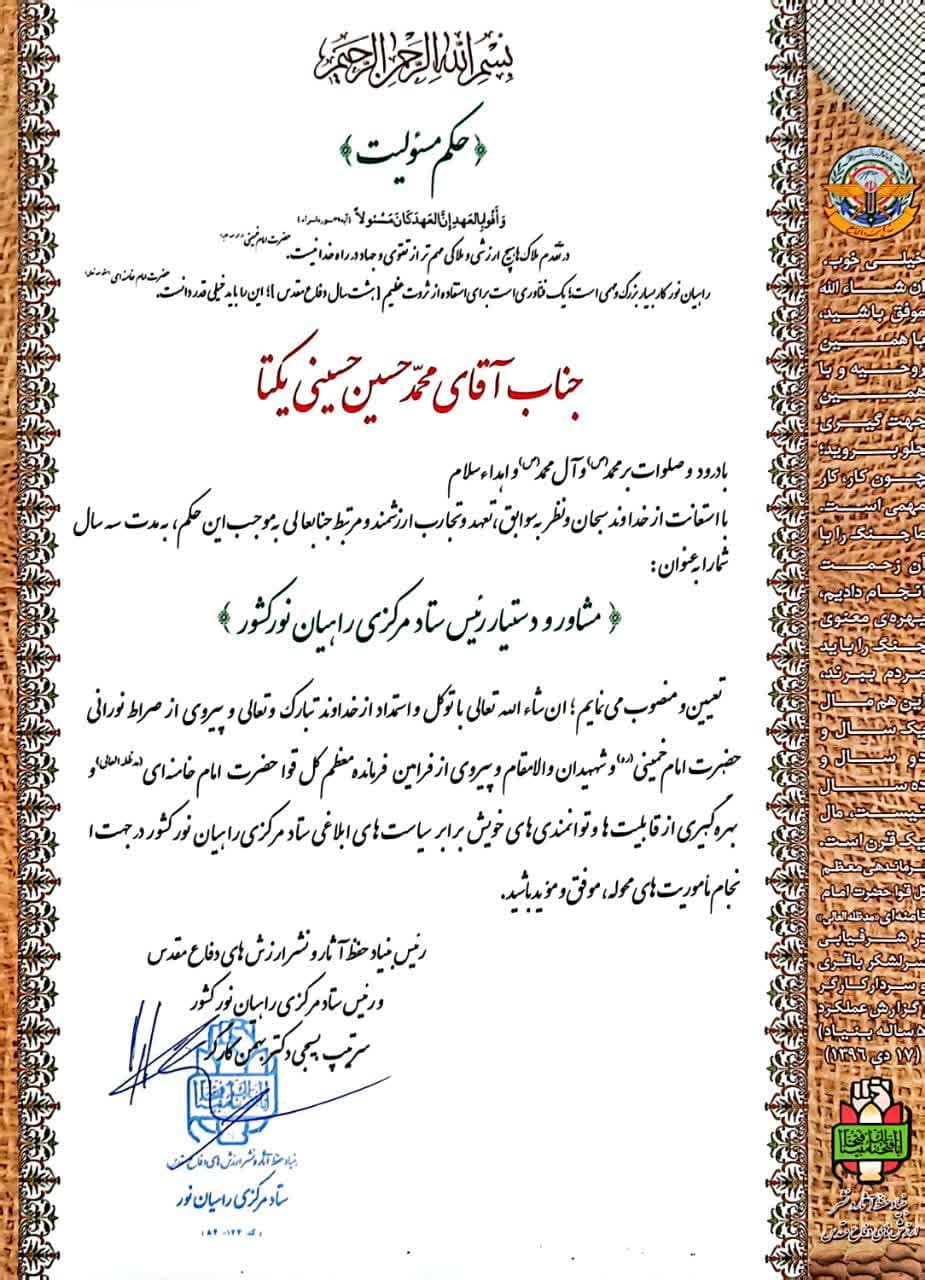 بسم الله الرحمن الرحیم
﴿ حکم مسئولیت ﴾
وَ أَوْفُوا بِالْعَهْدِ إِنَّ الْعَهْدَ كَانَ مَسْئُولاً
در تقدم ملاک‌ها هیچ ارزشی و ملاکی مهم تر از تقوی و جهاد در راه خدا نیست. حضرت امام خمینی
راهیان نور کار بسیار بزرگ و مهمی است؛ یک فناوری است برای استفاده از ثروت عظیم [هشت سال دفاع مقدس]؛ این را باید خیلی قدر دانست. حضرت امام خامنه ای
جناب آقای محمّد حسین حسینی یکتا
با درود و صلوات بر محمد(ص) و آل محمد(ص) و اهداء سلام
با استعانت از خداوند سبحان و نظر به سوابق، تعهد و تجارب ارزشمند و مرتبط جنابعالی به موجب این حکم، به مدت سه سال
شما را به عنوان:
﴿ مشاور و دستیار رئیس ستاد مرکزی راهیان نور کشور ﴾
تعیین و منصوب می نمایم؛ ان شاء الله تعالی با توکل و استمداد از خداوند تبارک و تعالی و پیروی از صراط نورانی
حضرت امام خمینی(ره) و شهیدان والامقام و پیروی از فرامین فرمانده معظم کل قوا حضرت امام خامنه ای (مدظله العالی) و
بهره گیری از قابلیت ها و توانمندی های خویش برابر سیاست های ابلاغی ستاد مرکزی راهیان نور کشور در جهت ا
نجام مأموریت های محوله، موفق و مؤید باشید.
رئیس بنیاد حفظ آثار و نشر ارزش های دفاع مقدس
و رئیس ستاد مرکزی راهیان نور کشور
سرتیپ بسیجی دکتر بهمن کارگر
إنا فتحنا لك فتحا مبينا
بنیاد حفظ آثار و نشر ارزش های دفاع مقدس
ستاد مرکزی راهیان نور
خیلی خوب،
ان شاء الله
موفق باشید،
با همین
روحیه و با
همین
جهت گیری
جلو بروید؛
چون کار، کار
مهمی است.
ما جنگ را با
آن زحمت
انجام دادیم،
بهره‌ی معنوی
جنگ را باید
مردم ببرند،
این هم مال
یک سال و
دو سال و
ده سال
نیست، مال
یک قرن است.
فرماندهی معظم
کل قوا حضرت امام
خامنه‌ای «مدظله العالی»
در شرفیابی
سرلشکر باقری
و سردار کارگر
(گزارش عملکرد
۵ ساله بنیاد)
(۱۷ دی ۱۳۹۶)
إنا فتحنا لك فتحا مبينا
بنیاد حفظ آثار و نشر
ارزش های دفاع مقدس